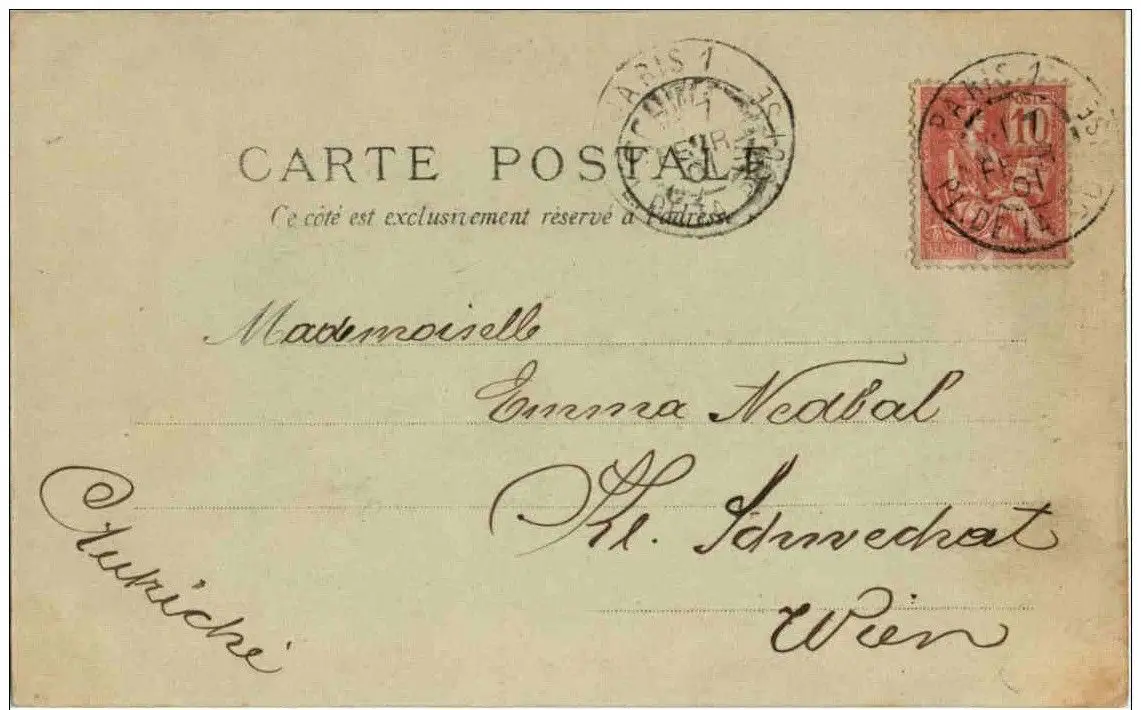 CARTE POSTALE
Ce côté est exclusivement réservé à l'adresse
PARIS 1
PARIS 1
PL. DE LA
POSTES
10
Mademoiselle
Emma Nedbal
Kl. Schwechat
Wien
Autriche